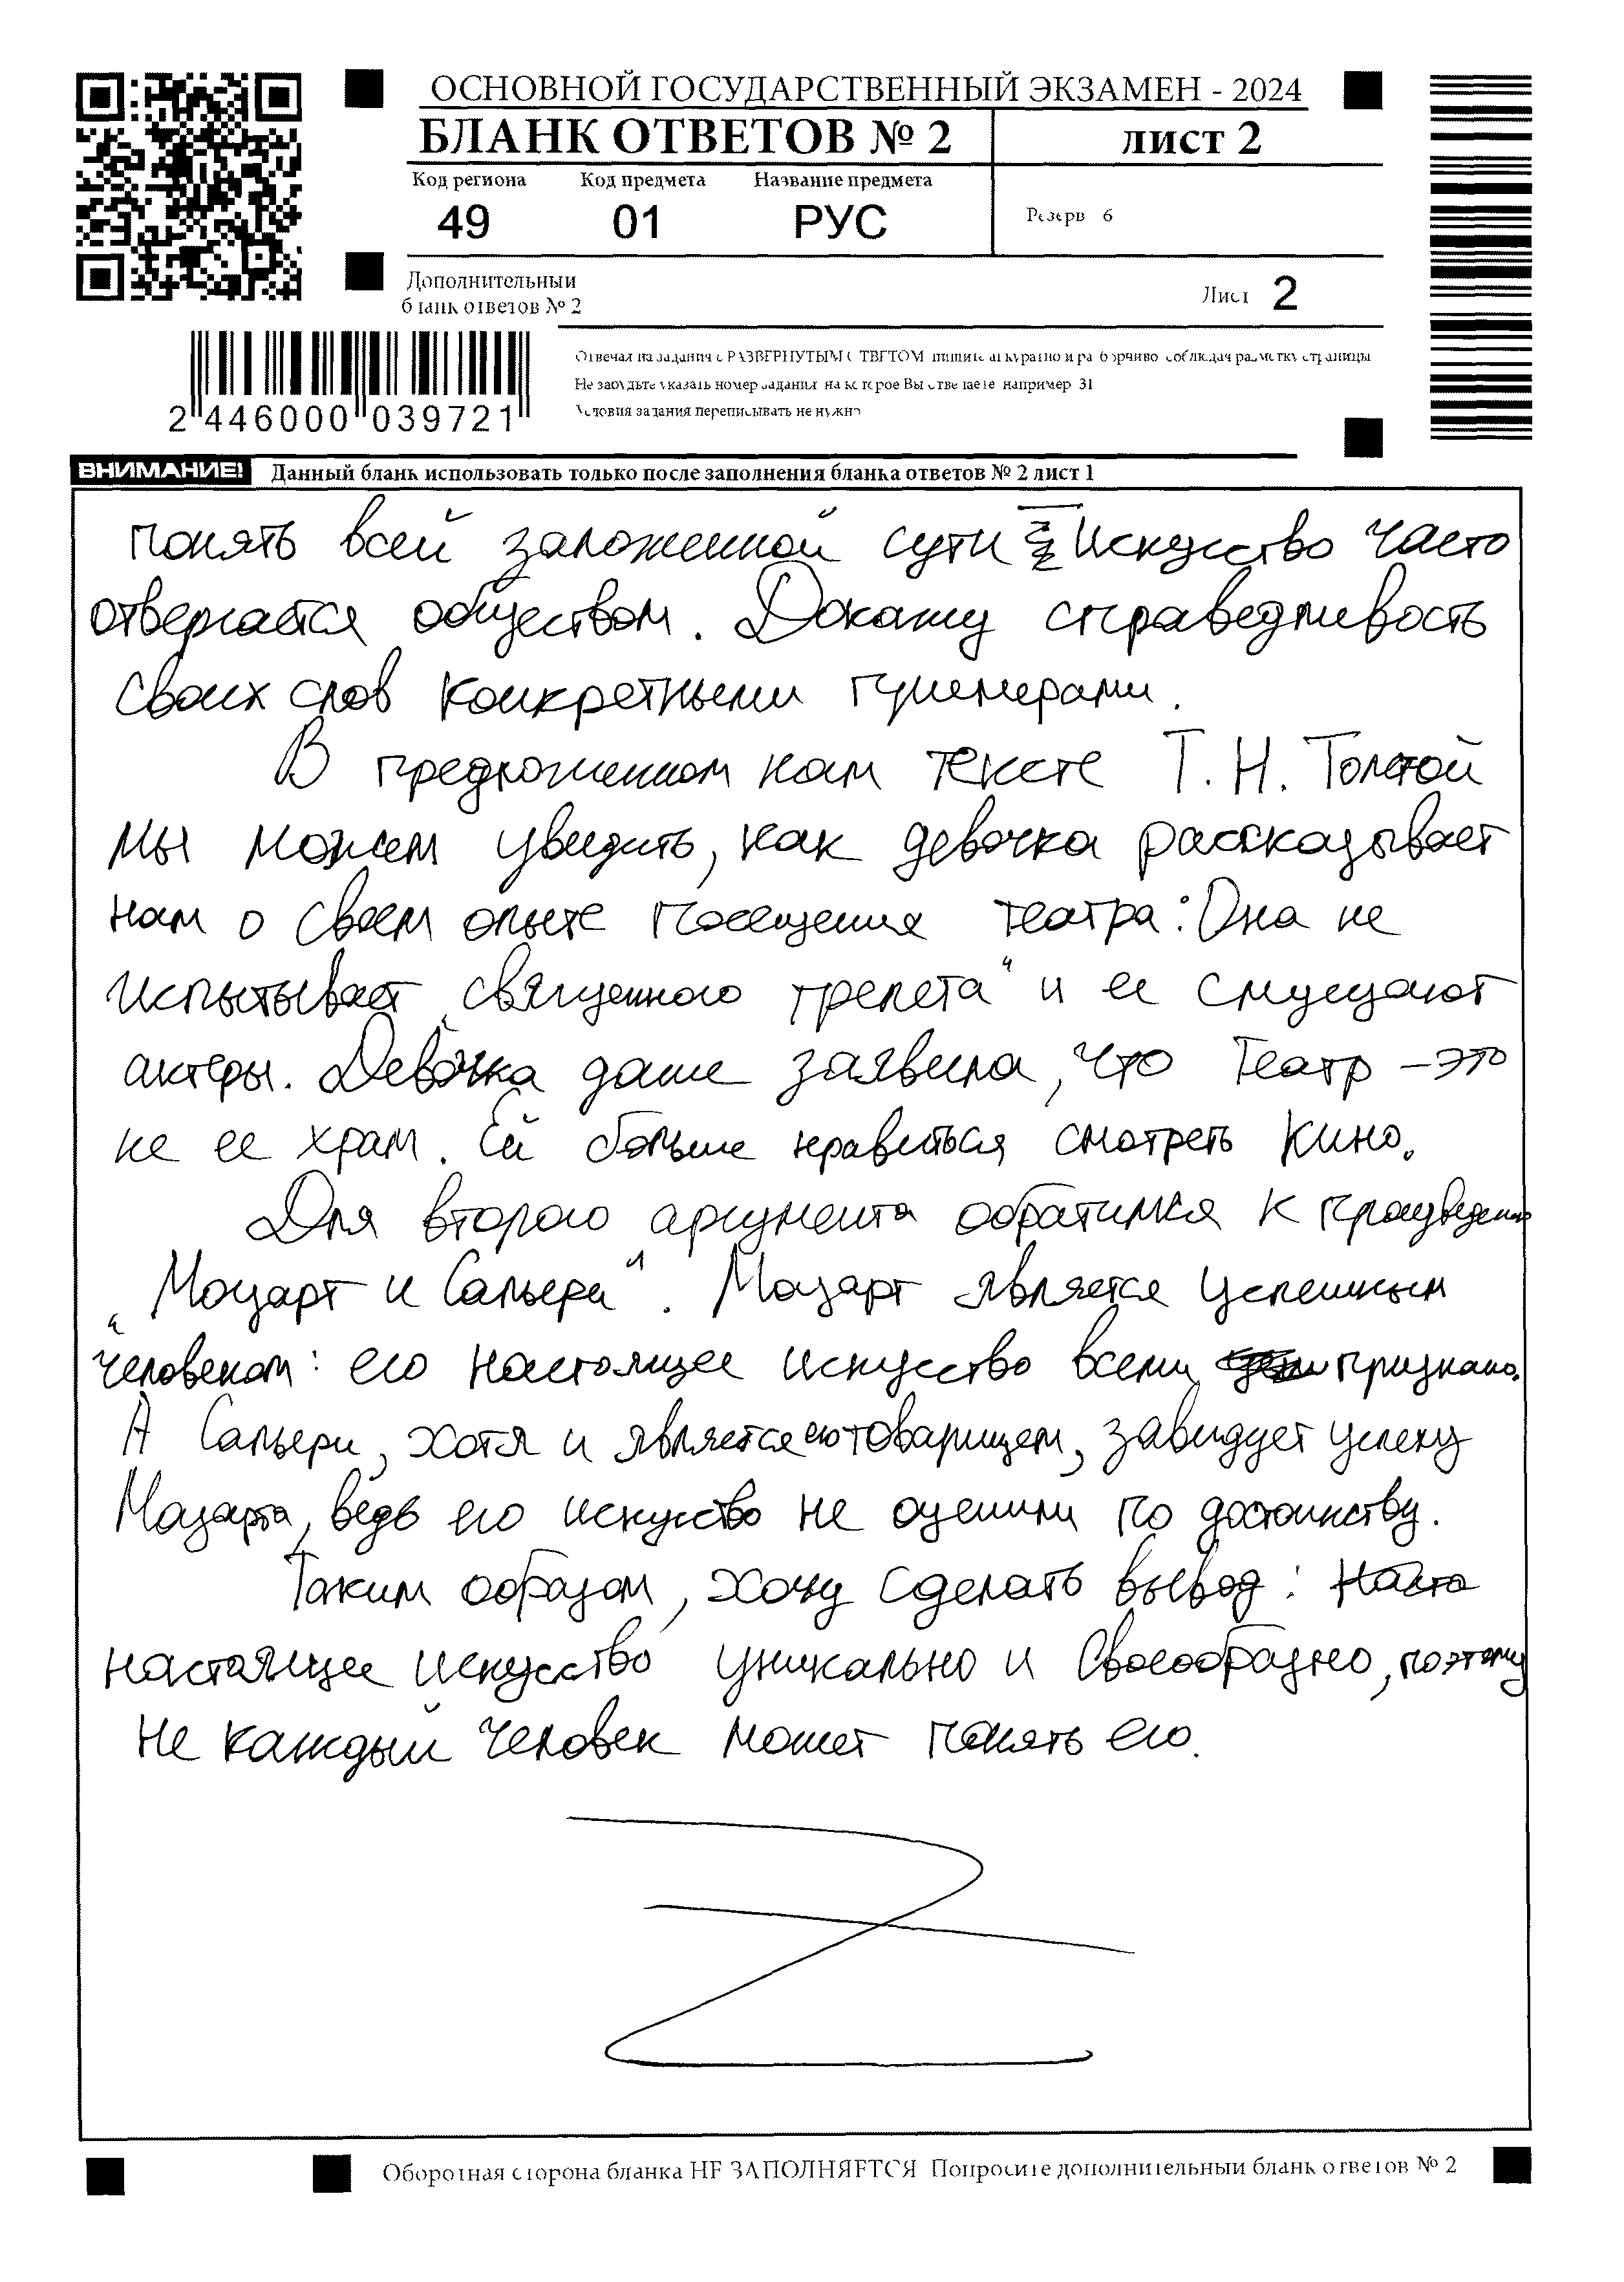 ОСНОВНОЙ ГОСУДАРСТВЕННЫЙ ЭКЗАМЕН - 2024
БЛАНК ОТВЕТОВ № 2
лист 2
Код региона Код предмета Название предмета
49 01 РУС
Резерв 6
Дополнительный
бланк ответов № 2
Лист 2
Отвечая на задания с РАЗВЕРНУТЫМ ОТВЕТОМ пишите аккуратно и разборчиво соблюдая разметку страницы
Не забудьте указать номер задания на которое Вы отвечаете например 31
Условия задания переписывать не нужно
2 446000 039721
ВНИМАНИЕ! Данный бланк использовать только после заполнения бланка ответов № 2 лист 1
понять всей заложенной сути Искусство часто
отвергается обществом. Докажу справедливость
своих слов конкретными примерами.
В предложенном нам тексте Т. Н. Толстой
мы можем увидеть, как девочка рассказывает
нам о своем опыте посещения театра: Она не
испытывает „священного трепета“ и ее смущают
актеры. Девочка даже заявила, что театр – это
не ее храм. Ей больше нравиться смотреть кино.
Для второго аргумента обратимся к произведению
„Моцарт и Сальери“. Моцарт является успешным
человеком: его настоящее искусство всеми признано.
А Сальери, хотя и является его товарищем, завидует успеху
Моцарта, ведь его искусство не оценили по достоинству.
Таким образом, хочу сделать вывод: Насто
настоящее искусство уникально и своеобразно, поэтому
не каждый человек может понять его.
Оборотная сторона бланка НЕ ЗАПОЛНЯЕТСЯ Попросите дополнительный бланк ответов № 2